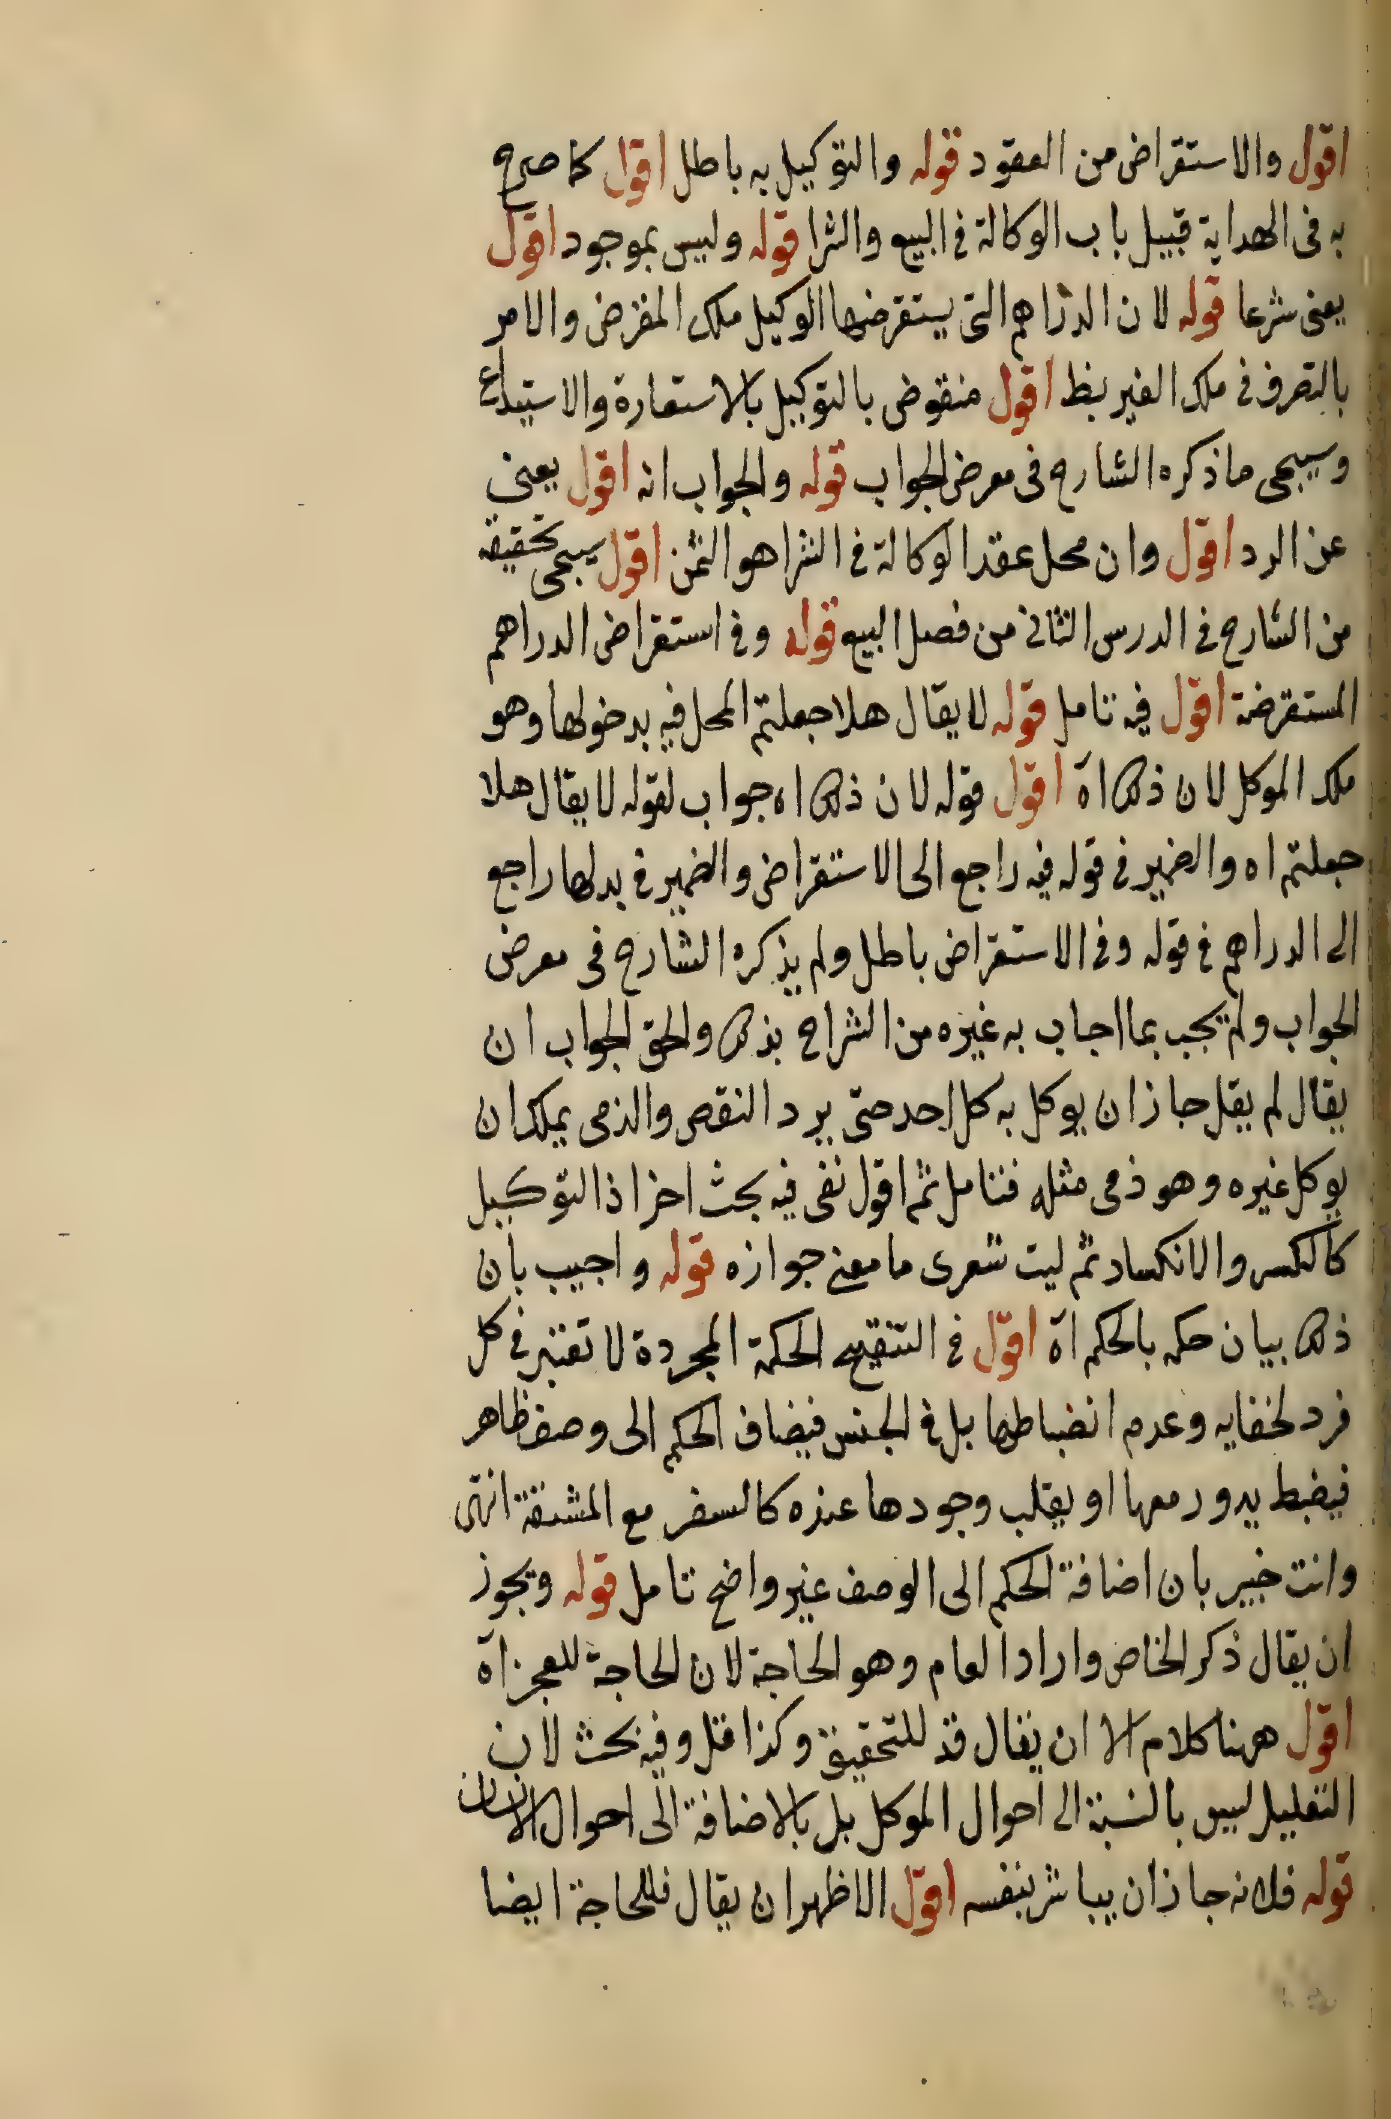 اقول والاستقراض من العقود قوله والتوكيل به باطل اقول كما صرح
به فى الهداية قبيل باب الوكالة فى البيع والشرا قوله وليس بموجود اقول
يعنى شرعا قوله لان الدراهم التى يستقرضها الوكيل ملك المقرض والامر
بالتصرف فى ملك الغير بط اقول منقوض بالتوكيل بالاستعارة والاستيداع
وسيجى ما ذكره الشارح فى معرض الجواب قوله والجواب انه اقول يعنى
عن الرد اقول وان محل عقد الوكالة فى الشرا هو الثمن اقول سيجى تحقيقه
من الشارح فى الدرس الثانى من فصل البيع قوله وفى استقراض الدراهم
المستقرضة اقول فيه تامل قوله لا يقال هلا جعلتم المحل فيه بدخولها وهو
ملك الموكل لان ذلك اه اقول قوله لان ذلك اه جواب لقوله لا يقال هلا
جعلتم اه والضمير فى قوله فيه راجع الى الاستقراض والضمير فى بدلها راجع
الى الدراهم فى قوله وفى الاستقراض باطل ولم يذكره الشارح فى معرض
الجواب ولم يجب بما اجاب به غيره من الشراح بذلك والحق الجواب ان
يقال لم يقل جاز ان يوكل به كل احد حتى يرد النقض والذمى يملك ان
يوكل غيره وهو ذمى مثله فتامل ثم اقول نفى فيه بحث اخر اذ التوكيل
كالكسر والانكساد ثم ليت شعرى ما معنى جوازه قوله واجيب بان
ذلك بيان حكمه بالحكم اه اقول فى التنقيح الحكمة المجردة لا تعتبر فى كل
فرد لخفايه وعدم انضباطها بل فى الجنس فيضاف الحكم الى وصف ظاهر
فيضبط يدور معها او يغلب وجودها عنده كالسفر مع المشقة انتهى
وانت خبير بان اضافة الحكم الى الوصف غير واضح تامل قوله ويجوز
ان يقال ذكر الخاص واراد العام وهو الحاجة لان الحاجة للعجز اه
اقول ههنا كلام الا ان يقال قد للتحقيق وكذا قتل وفيه بحث لان
التعليل ليس بالنسبة الى احوال الموكل بل بالاضافة الى احوال الانسان
قوله فلانه جاز ان يباشر بنفسه اقول الاظهر ان يقال فللحاجة ايضا